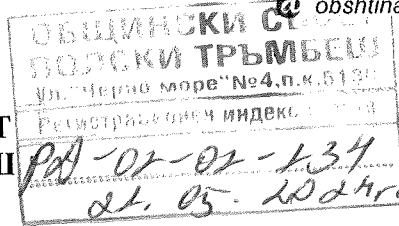 @ obshtina
ОБЩИНСКИ С
ПОЛСКИ ТРЪМБЕШ
ул."Черно море"№4,п.к.5180
Регистрационен индекс
Т
Ш
РД-01-01-134
21. 05. 2024г.